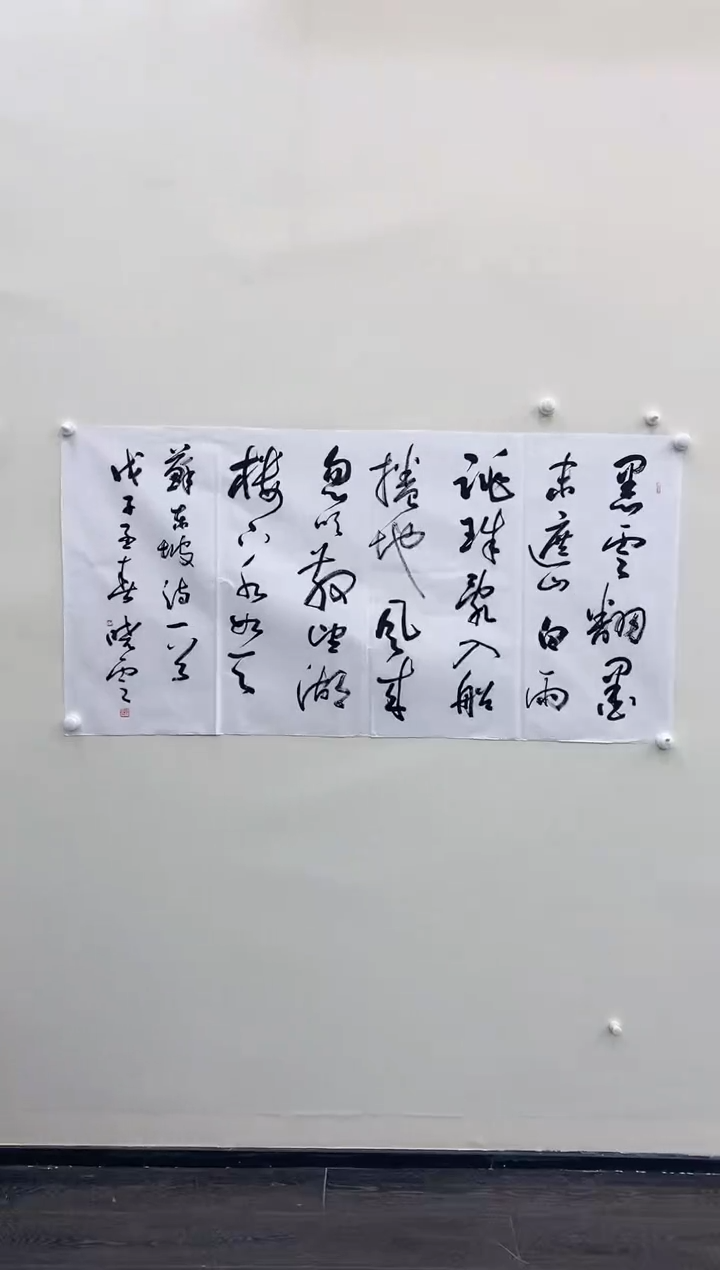 黑雲翻墨
未遮山白雨
跳珠亂入船
捲地風來
忽吹散望湖
樓下水如天
蘇東坡詩一首
戊子孟春曉雲